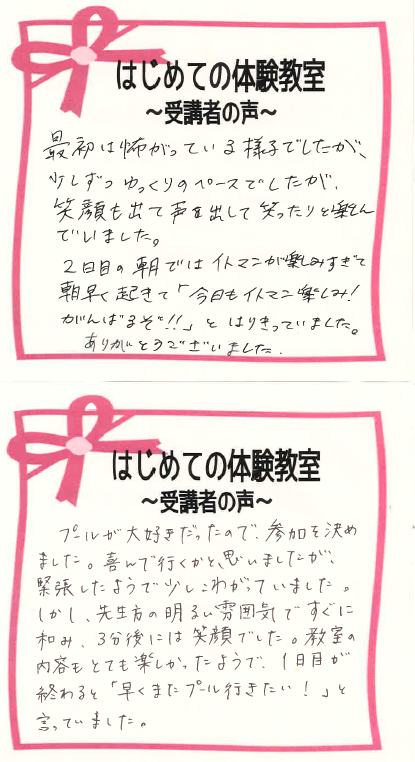 はじめての体験教室
～受講者の声～
最初は怖がっている様子でしたが、
少しずつゆっくりのペースでしたが、
笑顔も出て声を出して笑ったりと楽しん
でいました。
2日目の朝ではイトマンが楽しみすぎて
朝早く起きて「今日もイトマン楽しみ!
がんばるぞ!!」とはりきっていました。
ありがとうございました.
はじめての体験教室
～受講者の声～
プールが大好きだったので、参加を決め
ました。喜んで行くかと、思いましたが、
緊張したようで少しこわがっていました。
しかし、先生方の明るい雰囲気ですぐに
和み、3分後には笑顔でした。教室の
内容もとても楽しかったようで、1日目が
終わると「早くまたプール行きたい!」と
言っていました。